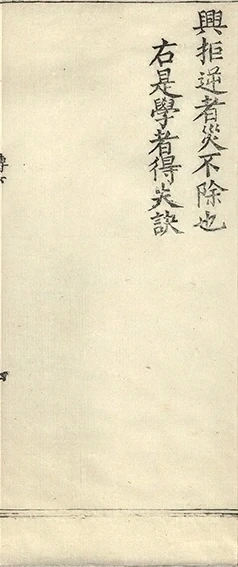 興拒逆者災不除也
右是學者得失訣